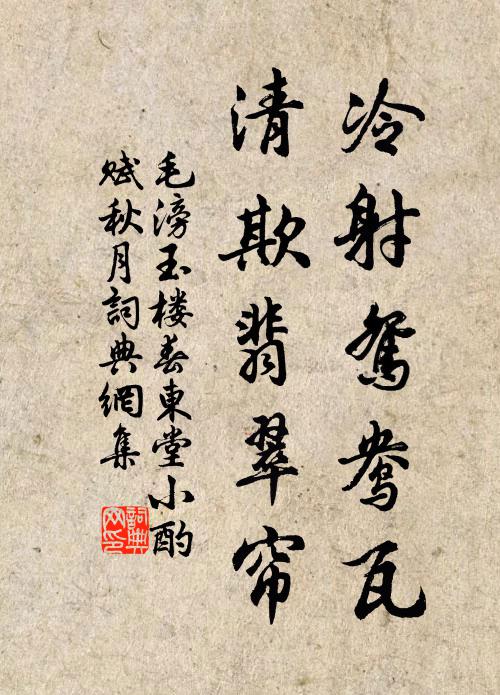 冷射鴛鴦瓦
清欺翡翠帘
毛滂玉楼春東堂小酌
賦秋月詞典網集
詞典
网印